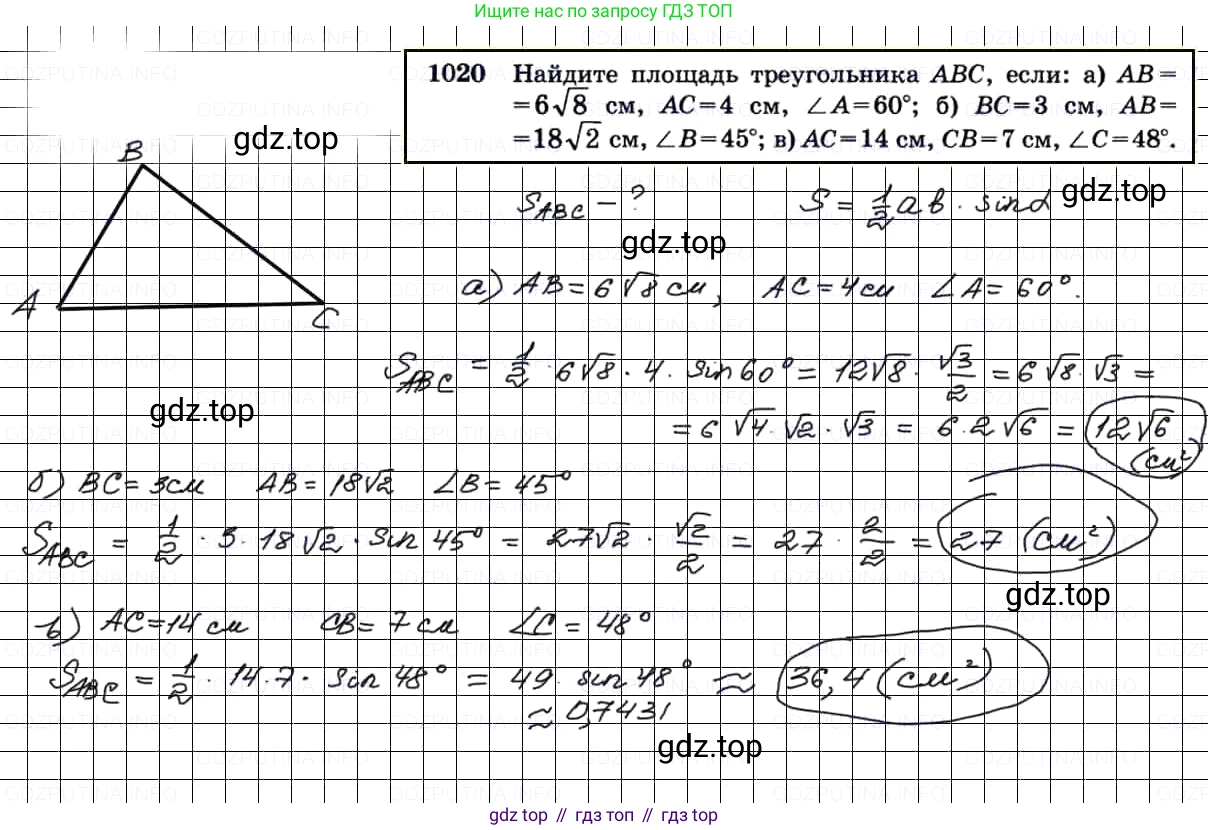 Ищите нас по запросу ГДЗ ТОП
1020 Найдите площадь треугольника ABC, если: а) AB=
=6√8 см, AC=4 см, ∠A=60°; б) BC=3 см, AB=
=18√2 см, ∠B=45°; в) AC=14 см, CB=7 см, ∠C=48°.
gdz.top
B
A
C
S_ABC – ?
S = 1/2 ab · sin α
gdz.top
gdz.top
а) AB = 6√8 см, AC = 4 см ∠A = 60°.
S_ABC = 1/2 · 6√8 · 4 · sin 60° = 12√8 · √3/2 = 6√8 · √3 =
= 6 √4 · √2 · √3 = 6 · 2√6 = 12√6 (см²)
gdz.top
б) BC = 3см AB = 18√2 ∠B = 45°
S_ABC = 1/2 · 3 · 18√2 · sin 45° = 27√2 · √2/2 = 27 · 2/2 = 27 (см²)
gdz.top
в) AC = 14 см CB = 7 см ∠C = 48°
S_ABC = 1/2 · 14 · 7 · sin 48° = 49 · sin 48° ≈ 36,4 (см²)
≈ 0,7431
gdz.top
gdz top // гдз топ // gdz top
GDZPUTINA.INFO